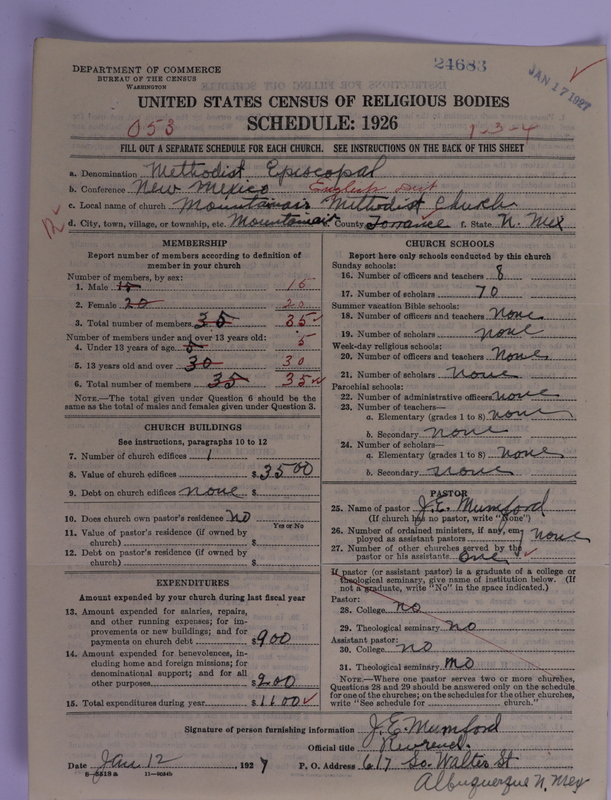 24683
JAN 17 1927
DEPARTMENT OF COMMERCE
BUREAU OF THE CENSUS
WASHINGTON
UNITED STATES CENSUS OF RELIGIOUS BODIES
053 SCHEDULE: 1926 1-3-4
FILL OUT A SEPARATE SCHEDULE FOR EACH CHURCH. SEE INSTRUCTIONS ON THE BACK OF THIS SHEET
a. Denomination Methodist Episcopal
b. Conference New Mexico English Dist
c. Local name of church Mountainair Methodist Church
d. City, town, village, or township, etc. Mountainair e. County Torrance f. State N. Mex
MEMBERSHIP
Report number of members according to definition of
member in your church
Number of members, by sex:
1. Male 15 15
2. Female 20 20
3. Total number of members 35 35
Number of members under and over 13 years old:
4. Under 13 years of age 5 5
5. 13 years old and over 30 30
6. Total number of members 35 35
NOTE.—The total given under Question 6 should be
same as the total of males and females given under Question 3.
CHURCH BUILDINGS
See instructions, paragraphs 10 to 12
7. Number of church edifices 1
8. Value of church edifices $3500
9. Debt on church edifices none $
10. Does church own pastor's residence no
Yes or No
11. Value of pastor's residence (if owned by
church) $
12. Debt on pastor's residence (if owned by
church) $
EXPENDITURES
Amount expended by your church during last fiscal year
13. Amount expended for salaries, repairs,
and other running expenses; for im-
provements or new buildings; and for
payments on church debt $900
14. Amount expended for benevolences, in-
cluding home and foreign missions; for
denominational support; and for all
other purposes $200
15. Total expenditures during year $1100
CHURCH SCHOOLS
Report here only schools conducted by this church
Sunday schools:
16. Number of officers and teachers 8
17. Number of scholars 70
Summer vacation Bible schools:
18. Number of officers and teachers none
19. Number of scholars none
Week-day religious schools:
20. Number of officers and teachers None
21. Number of scholars None
Parochial schools:
22. Number of administrative officers none
23. Number of teachers—
a. Elementary (grades 1 to 8) none
b. Secondary none
24. Number of scholars—
a. Elementary (grades 1 to 8) none
b. Secondary none
PASTOR
25. Name of pastor J. E. Mumford
(If church has no pastor, write "None")
26. Number of ordained ministers, if any, em-
ployed as assistant pastors none
27. Number of other churches served by the
pastor or his assistants one
If pastor (or assistant pastor) is a graduate of a college or
theological seminary, give name of institution below. (If
not a graduate, write "No" in the space indicated.)
Pastor:
28. College no
29. Theological seminary no
Assistant pastor:
30. College no
31. Theological seminary no
NOTE.—Where one pastor serves two or more churches,
Questions 28 and 29 should be answered only on the schedule
for one of the churches; on the schedules for the other churches,
write "See schedule for church."
Signature of person furnishing information J. E. Mumford
Official title Reverend
Date Jan. 12, 1927 P. O. Address 617 So. Walter St
Albuquerque N. Mex